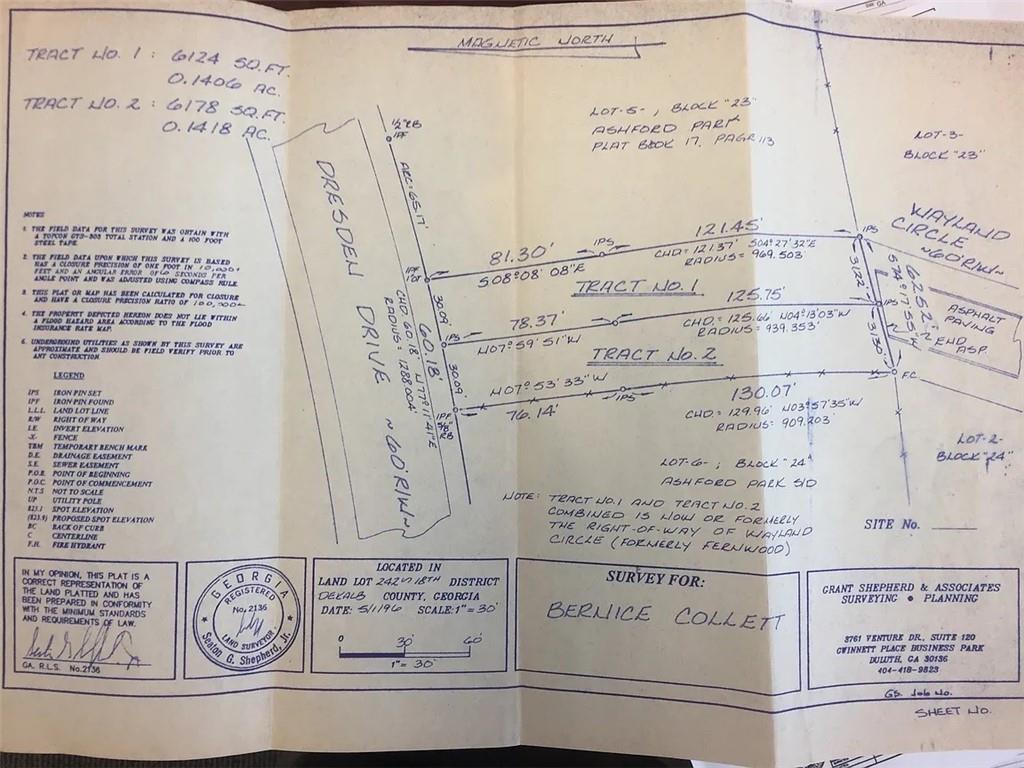 TRACT NO. 1 : 6124 SQ.FT.
0.1406 AC.
TRACT NO. 2 : 6178 SQ.FT.
0.1418 AC.
MAGNETIC NORTH
LOT-5- , BLOCK "23"
ASHFORD PARK
PLAT BOOK 17, PAGE 113
LOT-3-
BLOCK "23"
WAYLAND
CIRCLE
~60'R/W~
ASPHALT
PAVING
END
ASP.
1/2" RB
IPF
ARC: 65.17
DRESDEN DRIVE ~60'R/W~
IPF
81.30'
S08°08'08"E
IPS
121.45'
S04°27'32"E
RADIUS= 969.503'
IPS
TRACT NO. 1
30.09'
60.18'
CHD: 60.18
RADIUS: 1288.004'
31.22'
62.52'
78.37'
N07°59'51"W
125.75'
CHD.= 125.66' N04°13'03"W
RADIUS= 939.353'
IPS
TRACT NO. 2
30.09'
31.30'
N07°53'33"W
76.14'
IPS
130.07'
CHD= 129.96' N03°57'35"W
RADIUS= 909.203'
F.C.
LOT-2-
BLOCK "24"
LOT-6- ; BLOCK "24"
ASHFORD PARK S/D
NOTE: TRACT NO.1 AND TRACT NO.2
COMBINED IS NOW OR FORMERLY
THE RIGHT-OF-WAY OF WAYLAND
CIRCLE (FORMERLY FERNWOOD)
SITE No.
NOTES
1. THE FIELD DATA FOR THIS SURVEY WAS OBTAIN WITH
A TOPCON GTS-303 TOTAL STATION AND A 100 FOOT
STEEL TAPE.
2. THE FIELD DATA UPON WHICH THIS SURVEY IS BASED
HAS A CLOSURE PRECISION OF ONE FOOT IN 10,000+
FEET AND AN ANGULAR ERROR OF 0 SECONDS PER
ANGLE POINT AND WAS ADJUSTED USING COMPASS RULE.
3. THIS PLAT OR MAP HAS BEEN CALCULATED FOR CLOSURE
AND HAVE A CLOSURE PRECISION RATIO OF 100,000+
4. THE PROPERTY DEPICTED HEREON DOES NOT LIE WITHIN
A FLOOD HAZARD AREA ACCORDING TO THE FLOOD
INSURANCE RATE MAP.
UNDERGROUND UTILITIES AS SHOWN BY THIS SURVEY ARE
APPROXIMATE AND SHOULD BE FIELD VERIFY PRIOR TO
ANY CONSTRUCTION.
LEGEND
IPS IRON PIN SET
IPF IRON PIN FOUND
L.L.L. LAND LOT LINE
R/W RIGHT OF WAY
I.E. INVERT ELEVATION
-X- FENCE
TBM TEMPORARY BENCH MARK
D.E. DRAINAGE EASEMENT
S.E. SEWER EASEMENT
P.O.B. POINT OF BEGINNING
P.O.C. POINT OF COMMENCEMENT
N.T.S. NOT TO SCALE
UP UTILITY POLE
823.1 SPOT ELEVATION
(823.9) PROPOSED SPOT ELEVATION
BC BACK OF CURB
C CENTERLINE
F.H. FIRE HYDRANT
IN MY OPINION, THIS PLAT IS A
CORRECT REPRESENTATION OF
THE LAND PLATTED AND HAS
BEEN PREPARED IN CONFORMITY
WITH THE MINIMUM STANDARDS
AND REQUIREMENTS OF LAW.
GA. R.L.S. No.2136
GEORGIA
REGISTERED
No. 2136
LAND SURVEYOR
Sealon G. Shepherd, Jr.
LOCATED IN
LAND LOT 242 18TH DISTRICT
DEKALB COUNTY, GEORGIA
DATE: 5/1/96 SCALE: 1" = 30'
0 30' 60'
1" = 30'
SURVEY FOR:
BERNICE COLLETT
GRANT SHEPHERD & ASSOCIATES
SURVEYING • PLANNING
3761 VENTURE DR., SUITE 120
GWINNETT PLACE BUSINESS PARK
DULUTH, GA 30136
404-418-9823
GS. Job No.
SHEET NO.